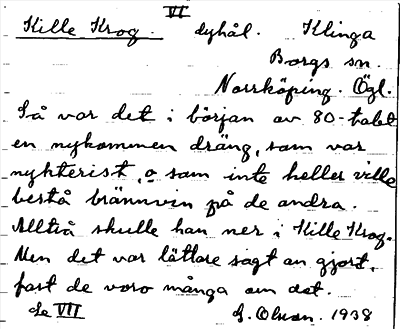 VI
Kille Krog. dyhål. Klinga
Borgs sn.
Norrköping. Ögl.
Så var det i början av 80-talet
en nykommen dräng, som var
nykterist, o som inte heller ville
bestå brännvin på de andra.
Alltså skulle han ner i Kille Krog.
Men det var lättare sagt än gjort.
fast de voro många om det.
se VII G. Olsson. 1938